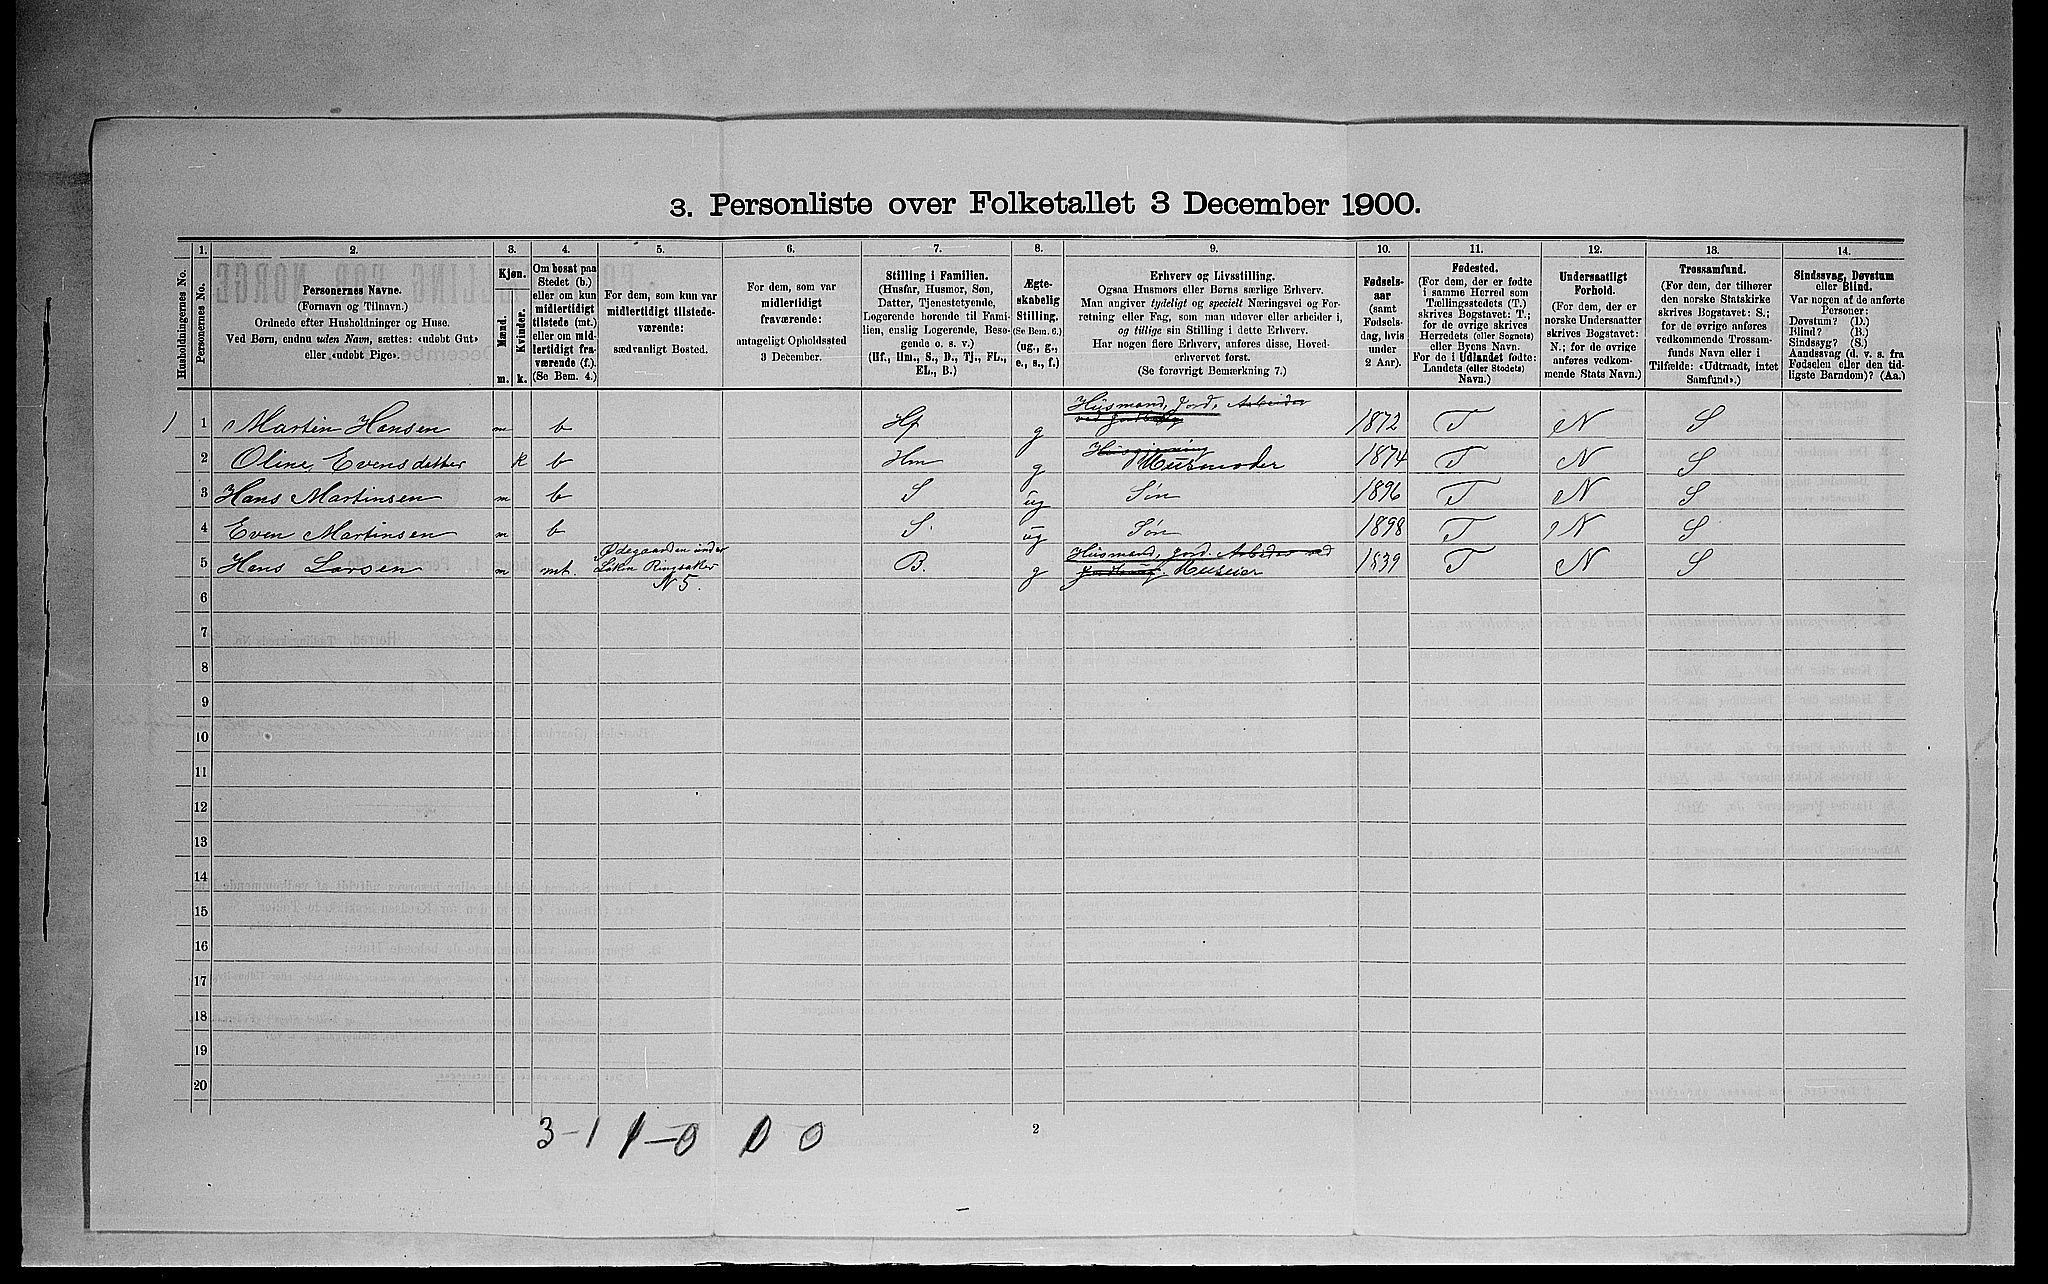 3. Personliste over Folketallet 3 December 1900.
1. 2. 3. 4. 5. 6. 7. 8. 9. 10. 11. 12. 13. 14.
Husholdningernes No.
Personernes No.
Personernes Navne.
(Fornavn og Tilnavn.)
Ordnede efter Husholdninger og Huse.
Ved Børn, endnu uden Navn, sættes: «udøbt Gut»
eller «udøbt Pige».
Kjøn.
Mænd.
m.
Kvinder.
k.
Om bosat paa
Stedet (b.)
eller om kun
midlertidigt
tilstede (mt.)
eller om mid-
lertidigt fra-
værende (f.).
(Se Bem. 4.)
For dem, som kun var
midlertidigt tilstede-
værende:
sædvanligt Bosted.
For dem, som var
midlertidigt
fraværende:
antageligt Opholdssted
3 December.
Stilling i Familien.
(Husfar, Husmor, Søn,
Datter, Tjenestetyende,
Logerende hørende til Fami-
lien, enslig Logerende, Besø-
gende o. s. v.)
(Hf., Hm., S., D., Tj., FL.,
EL., B.)
Ægte-
skabelig
Stilling.
(Se Bem. 6.)
(ug., g.,
e., s., f.)
Erhverv og Livsstilling.
Ogsaa Husmors eller Børns særlige Erhverv.
Man angiver tydeligt og specielt Næringsvei og For-
retning eller Fag, som man udøver eller arbeider i,
og tillige sin Stilling i dette Erhverv.
Har nogen flere Erhverv, anføres disse, Hoved-
erhvervet først.
(Se forøvrigt Bemærkning 7.)
Fødsels-
aar
(samt
Fødsels-
dag, hvis
under
2 Aar).
Fødested.
(For dem, der er fødte
i samme Herred som
Tællingsstedets (T.)
skrives Bogstavet: T.;
for de øvrige skrives
Herredets (eller Sognets)
eller Byens Navn.
For de i Udlandet fødte:
Landets (eller Stedets)
Navn.)
Undersaatligt
Forhold.
(For dem, der er
norske Undersaatter
skrives Bogstavet:
N.; for de øvrige
anføres vedkom-
mende Stats Navn.)
Trossamfund.
(For dem, der tilhører
den norske Statskirke
skrives Bogstavet: S.;
for de øvrige anføres
vedkommende Trossam-
funds Navn eller i
Tilfælde: «Udtraadt, intet
Samfund».)
Sindssvag, Døvstum
eller Blind.
Var nogen af de anførte
Personer:
Døvstum? (D.)
Blind? (B.)
Sindssyg? (S.)
Aandssvag (d. v. s. fra
Fødselen eller den tid-
ligste Barndom)? (Aa.)
Husmand, Jord. Arbeider
ved Jordbrug
1) 1 Martin Hansen m b Hf g 1872 T N S
Husgjerning
2 Oline Evensdatter k b Hm g Husmoder 1874 T N S
3 Hans Martinsen m b S ug Søn 1896 T N S
4 Even Martinsen m b S. ug Søn 1898 T N S
Ødegaarden under Husmand, Jord. Arbeder ved
5 Hans Larsen m mt. Løken Ringsaker B. g Jordbrug. Huseier 1839 T N S
N 5.
6
7
8
9
10
11
12
13
14
15
16
17
18
19
20
3-1 1-0 0 0
2